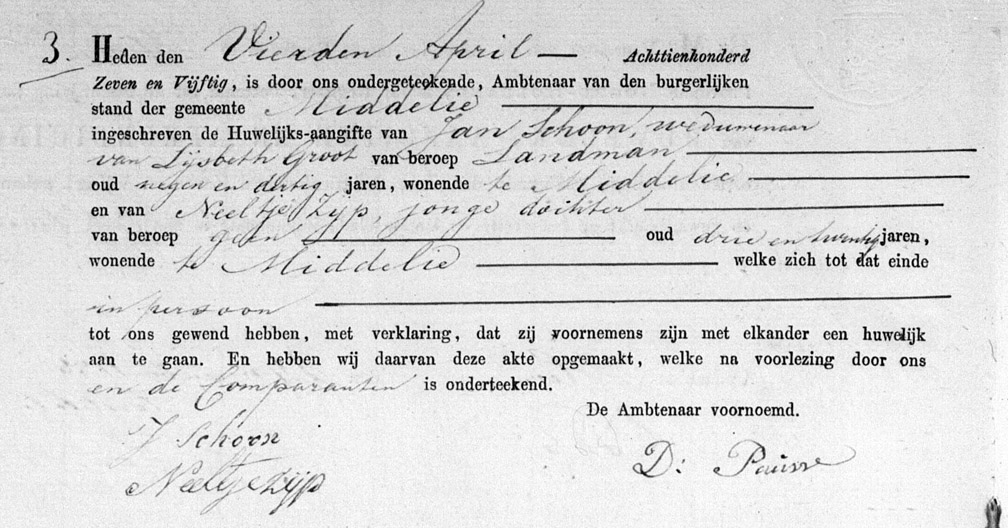 3. Heden den Vierden April — Achttienhonderd
Zeven en Vijftig, is door ons ondergeteekende, Ambtenaar van den burgerlijken
stand der gemeente Middelie
ingeschreven de Huwelijks-aangifte van Jan Schoon, weduwenaar
van Lijsbeth Groot van beroep Landman
oud negen en dertig jaren, wonende te Middelie
en van Neeltje Zijp, jonge dochter
van beroep geen oud drie en twintig jaren,
wonende te Middelie welke zich tot dat einde
in persoon
tot ons gewend hebben, met verklaring, dat zij voornemens zijn met elkander een huwelijk
aan te gaan. En hebben wij daarvan deze akte opgemaakt, welke na voorlezing door ons
en de Comparanten is onderteekend.
De Ambtenaar voornoemd.
J Schoon
D:
Neeltje Zijp